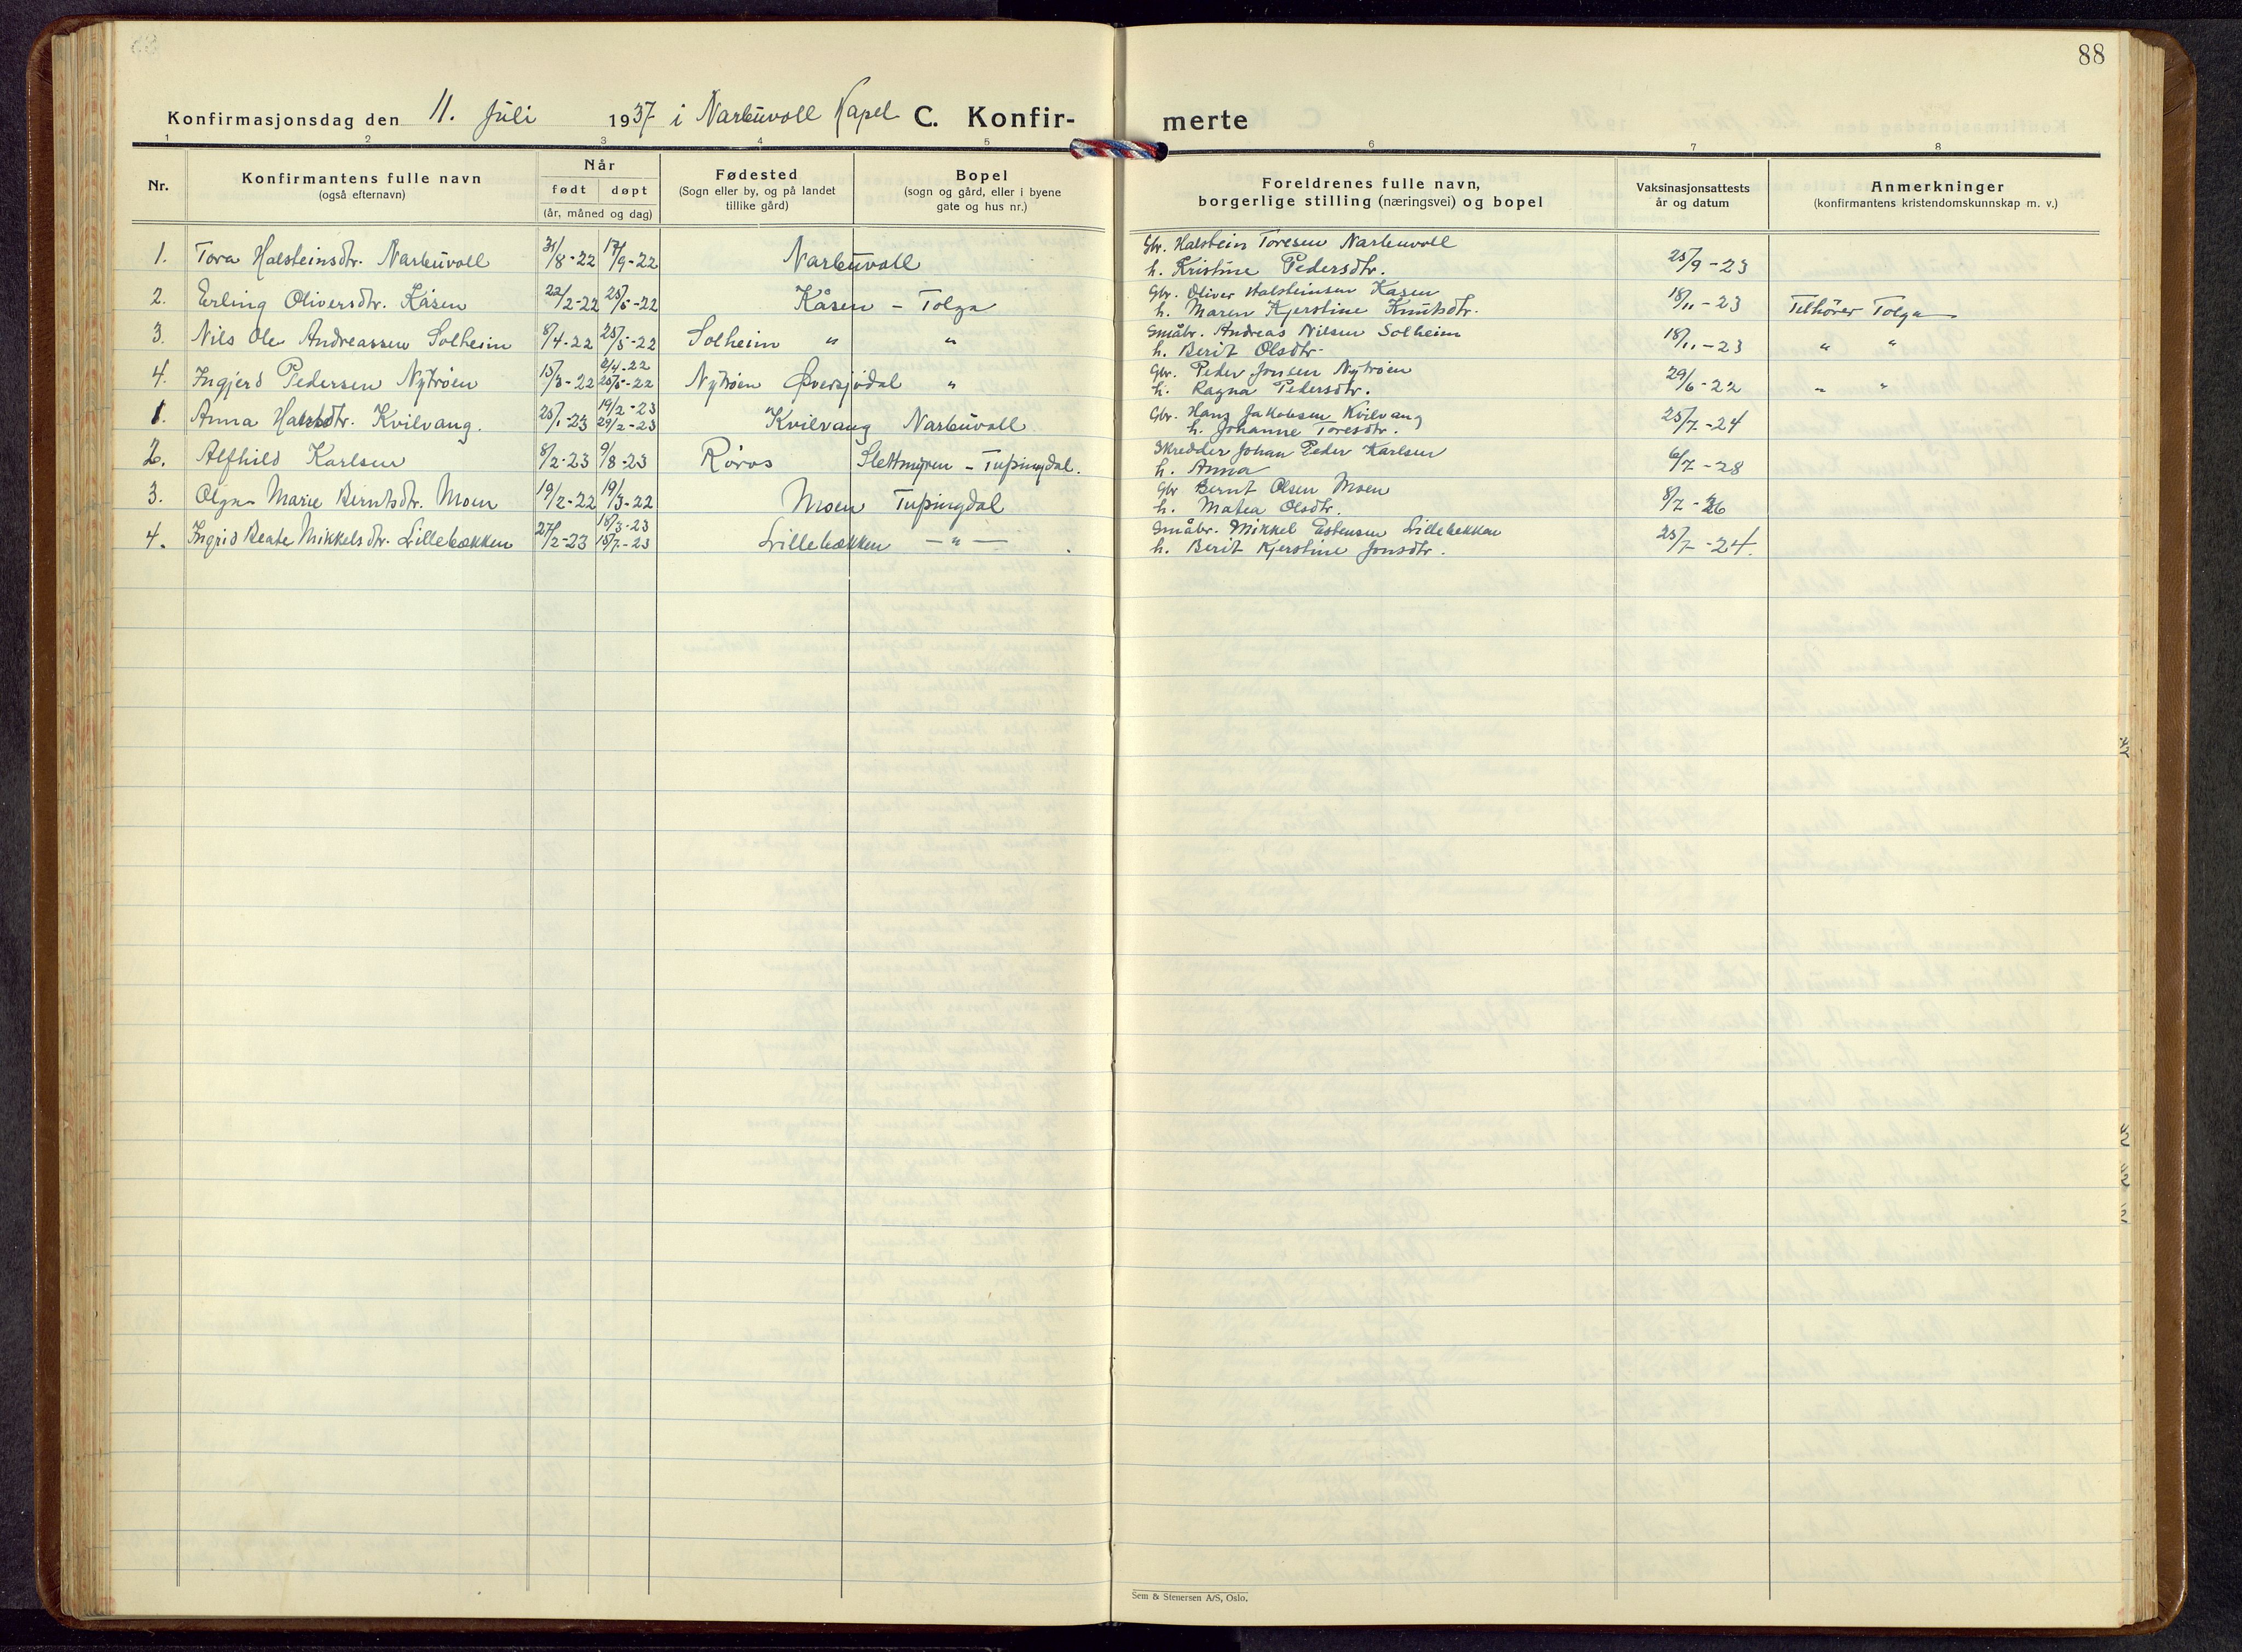 88
Konfirmasjonsdag den 11. Juli 1937 i Narbuvoll Kapel C. Konfir-merte
1 2 3 4 5 6 7 8
Nr.
Konfirmantens fulle navn
(også efternavn)
Når
født døpt
(år, måned og dag)
Fødested
(Sogn eller by, og på landet
tillike gård)
Bopel
(sogn og gård, eller i byene
gate og hus nr.)
Foreldrenes fulle navn,
borgerlige stilling (næringsvei) og bopel
Vaksinasjonsattests
år og datum
Anmerkninger
(konfirmantens kristendomskunnskap m. v.)
1. Tora Halsteinsdtr. Narbuvoll 31/8-22 17/9-22 Narbuvoll Gbr. Halstein Toresen Narbuvoll
h. Kristine Pedersdtr. 25/9-23
2. Erling Oliversdtr. Kåsen 22/2-22 25/5-22 Kåsen - Tolga Gbr. Oliver Halsteinsen Kåsen
h. Maren Kjerstine Knutsdtr. 18/11-23 Tilhører Tolga
3. Nils Ole Andreassen Solheim 8/4-22 25/5-22 Solheim " " Småbr. Andreas Nilsen Solheim
h. Berit Olsdtr. 18/11-23 " "
4. Ingjerd Pedersen Nytrøen 15/3-22 2/4-22 25/5-22 Nytrøen Øversjødal " Gbr. Peder Jonsen Nytrøen
h. Ragna Pedersdtr. 29/6-22 " "
1. Anna Hansdtr. Kvilvang. 25/1-23 19/2-23 29/2-23 Kvilvang Narbuvoll Gbr. Hans Jakobsen Kvilvang
h. Johanne Toresdtr. 25/7-24
2. Alfhild Karlsen 8/2-23 9/8-23 Røros Slettmyren - Tufsingdal. Skredder Johan Peder Karlsen
h. Anna 6/7-28
3. Olga Marie Berntsdtr. Moen 19/2-22 19/3-22 Moen Tufsingdal Gbr Bernt Olsen Moen
h. Matea Olsdtr. 8/7-26
4. Ingrid Beate Mikkelsdtr. Lillebækken 27/2-23 18/3-23 15/7-23 Lillebækken - " - Småbr. Mikkel Estensen Lillebekken
h. Berit Kjerstine Jonsdtr. 25/7-24.
Sem & Stenersen A/S, Oslo.